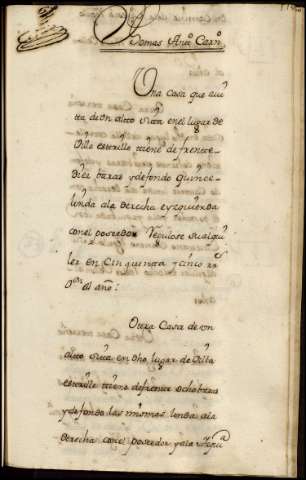 Thomas Anto Caxn
Una Casa que aui
tta de un altto sitta en el lugar de
Villa esterille ttiene de frentte
Diez baras y de fondo quince
linda ala derecha e yzquierda
con el posedor Regulose su alqui
ler en Cinquenta y cinco rs
Von el año:
Ottra Casa de un
altto sitta en dho lugar de Villa
esterille ttiene de frente ocho baras
y de fondo las mismas linda ala
derecha con el posehedor y ala yzqua